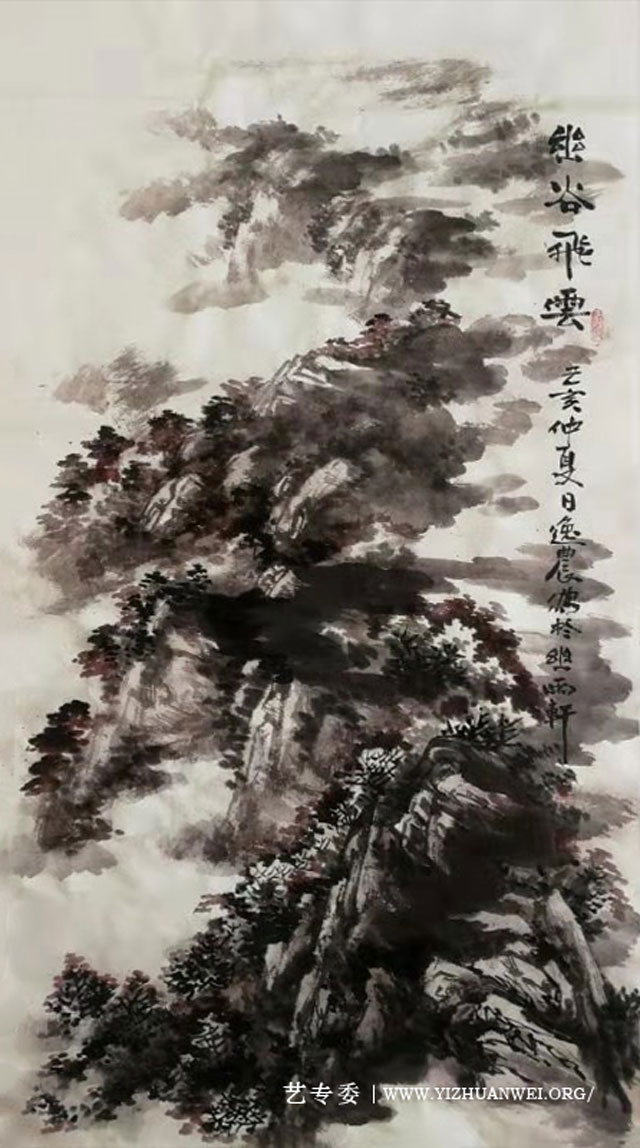 幽谷飛雲
己亥仲夏日逸農於幽雨軒
艺专委 | WWW.YIZHUANWEI.ORG/